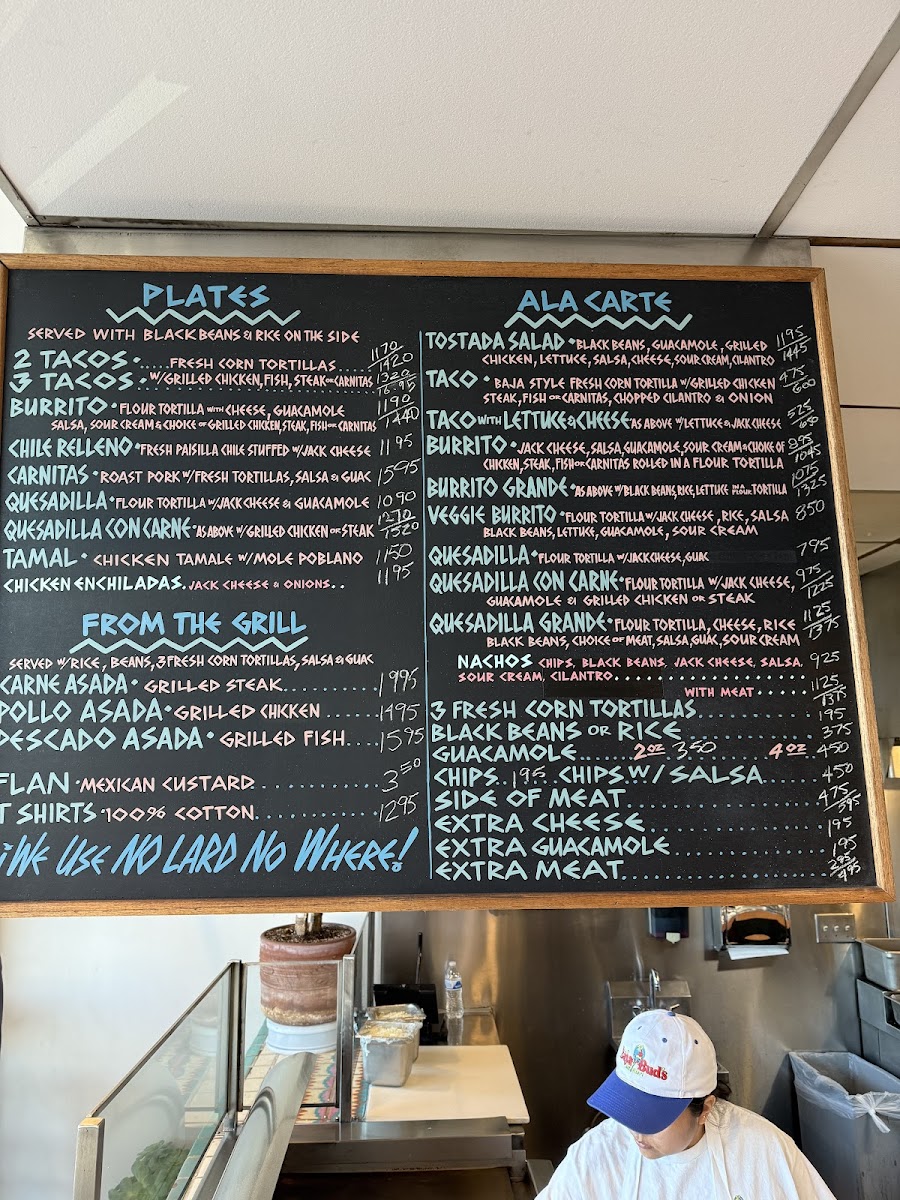 PLATES
SERVED WITH BLACK BEANS & RICE ON THE SIDE
2 TACOS • ..... FRESH CORN TORTILLAS ........ 1170/1420
3 TACOS • W/GRILLED CHICKEN, FISH, STEAK OR CARNITAS 1320/1695
BURRITO • FLOUR TORTILLA WITH CHEESE, GUACAMOLE 1190/1440
SALSA, SOUR CREAM & CHOICE OF GRILLED CHICKEN, STEAK, FISH OR CARNITAS
CHILE RELLENO • FRESH PAISILLA CHILE STUFFED W/JACK CHEESE 1195
CARNITAS • ROAST PORK W/FRESH TORTILLAS, SALSA & GUAC 1595
QUESADILLA • FLOUR TORTILLA W/JACK CHEESE & GUACAMOLE 1090
QUESADILLA CON CARNE • AS ABOVE W/GRILLED CHICKEN OR STEAK 1270/1520
TAMAL • CHICKEN TAMALE W/MOLE POBLANO 1150
CHICKEN ENCHILADAS. JACK CHEESE & ONIONS.. 1195
FROM THE GRILL
SERVED W/RICE, BEANS, 3 FRESH CORN TORTILLAS, SALSA & GUAC
CARNE ASADA • GRILLED STEAK.......... 1995
POLLO ASADA • GRILLED CHICKEN ...... 1495
PESCADO ASADA • GRILLED FISH.... 1595
FLAN • MEXICAN CUSTARD ............ 350
T SHIRTS • 100% COTTON............. 1295
¡WE USE NO LARD NO WHERE!
ALA CARTE
TOSTADA SALAD • BLACK BEANS, GUACAMOLE, GRILLED 1195/1445
CHICKEN, LETTUCE, SALSA, CHEESE, SOUR CREAM, CILANTRO
TACO • BAJA STYLE FRESH CORN TORTILLA W/GRILLED CHICKEN 475/600
STEAK, FISH OR CARNITAS, CHOPPED CILANTRO & ONION
TACO WITH LETTUCE & CHEESE AS ABOVE W/LETTUCE & JACK CHEESE 525/650
BURRITO • JACK CHEESE, SALSA, GUACAMOLE, SOUR CREAM & CHOICE OF 895/1045
CHICKEN, STEAK, FISH OR CARNITAS ROLLED IN A FLOUR TORTILLA
BURRITO GRANDE • AS ABOVE W/BLACK BEANS, RICE, LETTUCE IN A FLOUR TORTILLA 1075/1325
VEGGIE BURRITO • FLOUR TORTILLA W/JACK CHEESE, RICE, SALSA 850
BLACK BEANS, LETTUCE, GUACAMOLE, SOUR CREAM
QUESADILLA • FLOUR TORTILLA W/JACK CHEESE, GUAC 795
QUESADILLA CON CARNE • FLOUR TORTILLA W/JACK CHEESE, 975/1225
GUACAMOLE & GRILLED CHICKEN OR STEAK
QUESADILLA GRANDE • FLOUR TORTILLA, CHEESE, RICE 1125/1375
BLACK BEANS, CHOICE OF MEAT, SALSA, GUAC, SOUR CREAM
NACHOS CHIPS, BLACK BEANS, JACK CHEESE, SALSA, 925
SOUR CREAM, CILANTRO....................
WITH MEAT ...... 1125/1375
3 FRESH CORN TORTILLAS............ 195
BLACK BEANS OR RICE............... 375
GUACAMOLE...... 2 OZ 350 4 OZ 450
CHIPS.. 195 .. CHIPS W/ SALSA...... 450
SIDE OF MEAT.................. 475/595
EXTRA CHEESE................. 195
EXTRA GUACAMOLE............. 195
EXTRA MEAT.................. 295/495
Bud's